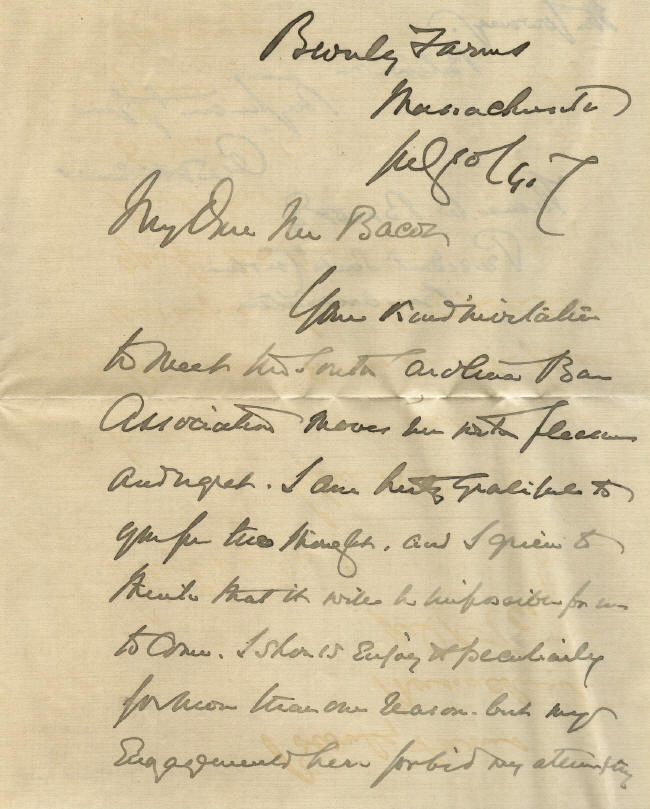 Beverly Farms
Massachusetts
My Dear Mr Bacon
Your kind invitation
to meet the South Carolina Bar
Association moves me with pleasure
and regret. I am heartily grateful to
you for the thought. and I grieve to
think that it will be impossible for me
to come. I should enjoy it peculiarly
for more than one reason. but my
Engagements here forbid my attending